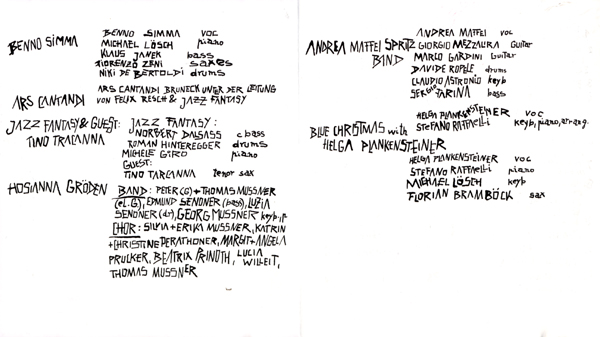 BENNO SIMMA
BENNO SIMMA VOC
MICHAEL LÖSCH piano
KLAUS JANEK bass
FIORENZO ZENI saxes
NIKI DE BERTOLDI drums
ARS CANTANDI
ARS CANTANDI BRUNECK UNTER DER LEITUNG
VON FELIX RESCH & JAZZ FANTASY
JAZZ FANTASY & GUEST:
TINO TRACANNA
JAZZ FANTASY:
NORBERT DALSASS c bass
ROMAN HINTEREGGER drums
MICHELE GIRO piano
GUEST:
TINO TRACANNA tenor sax
HOSIANNA GRÖDEN
BAND: PETER (G) + THOMAS MUSSNER
(el.G), EDMUND SENONER (bass), LUZIA
SENONER (dr), GEORG MUSSNER keyb, P
CHOR: SILVIA + ERIKA MUSSNER, KATRIN
+ CHRISTINE PERATHONER, MARGIT + ANGELA
PRUCKER, BEATRIX PRINOTH, LUCIA
WILLEIT,
THOMAS MUSSNER
ANDREA MAFFEI SPRITZ
BAND
ANDREA MAFFEI VOC
GIORGIO MEZZALIRA Guitar
MARCO GARDINI Guitar
DAVIDE ROPELE drums
CLAUDIO ASTRONIO keyb
SERGIO FARINA bass
BLUE CHRISTMAS with
HELGA PLANKENSTEINER
HELGA PLANKENSTEINER VOC
STEFANO RAFFAELLI keyb, piano, arrang.
HELGA PLANKENSTEINER VOC
STEFANO RAFFAELLI piano
MICHAEL LÖSCH keyb
FLORIAN BRAMBÖCK sax